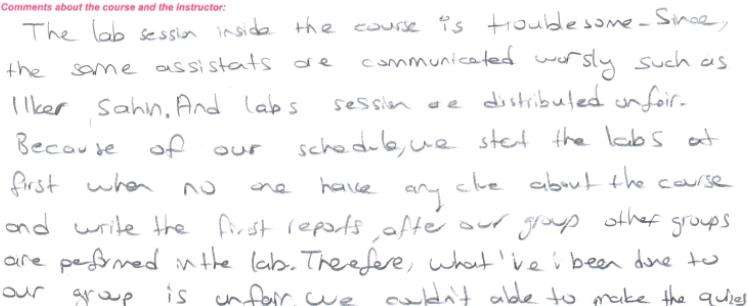 Comments about the course and the instructor:
The lab session inside the course is troublesome. Since,
the same assistats are communicated worsly such as
Ilker Sahin. And labs session are distributed unfair.
Because of our schedule, we start the labs at
first when no one have any clue about the course
and write the first reports, after our group other groups
are performed in the lab. Therefore, what've i been done to
our group is unfair. We couldn't able to make the quizes